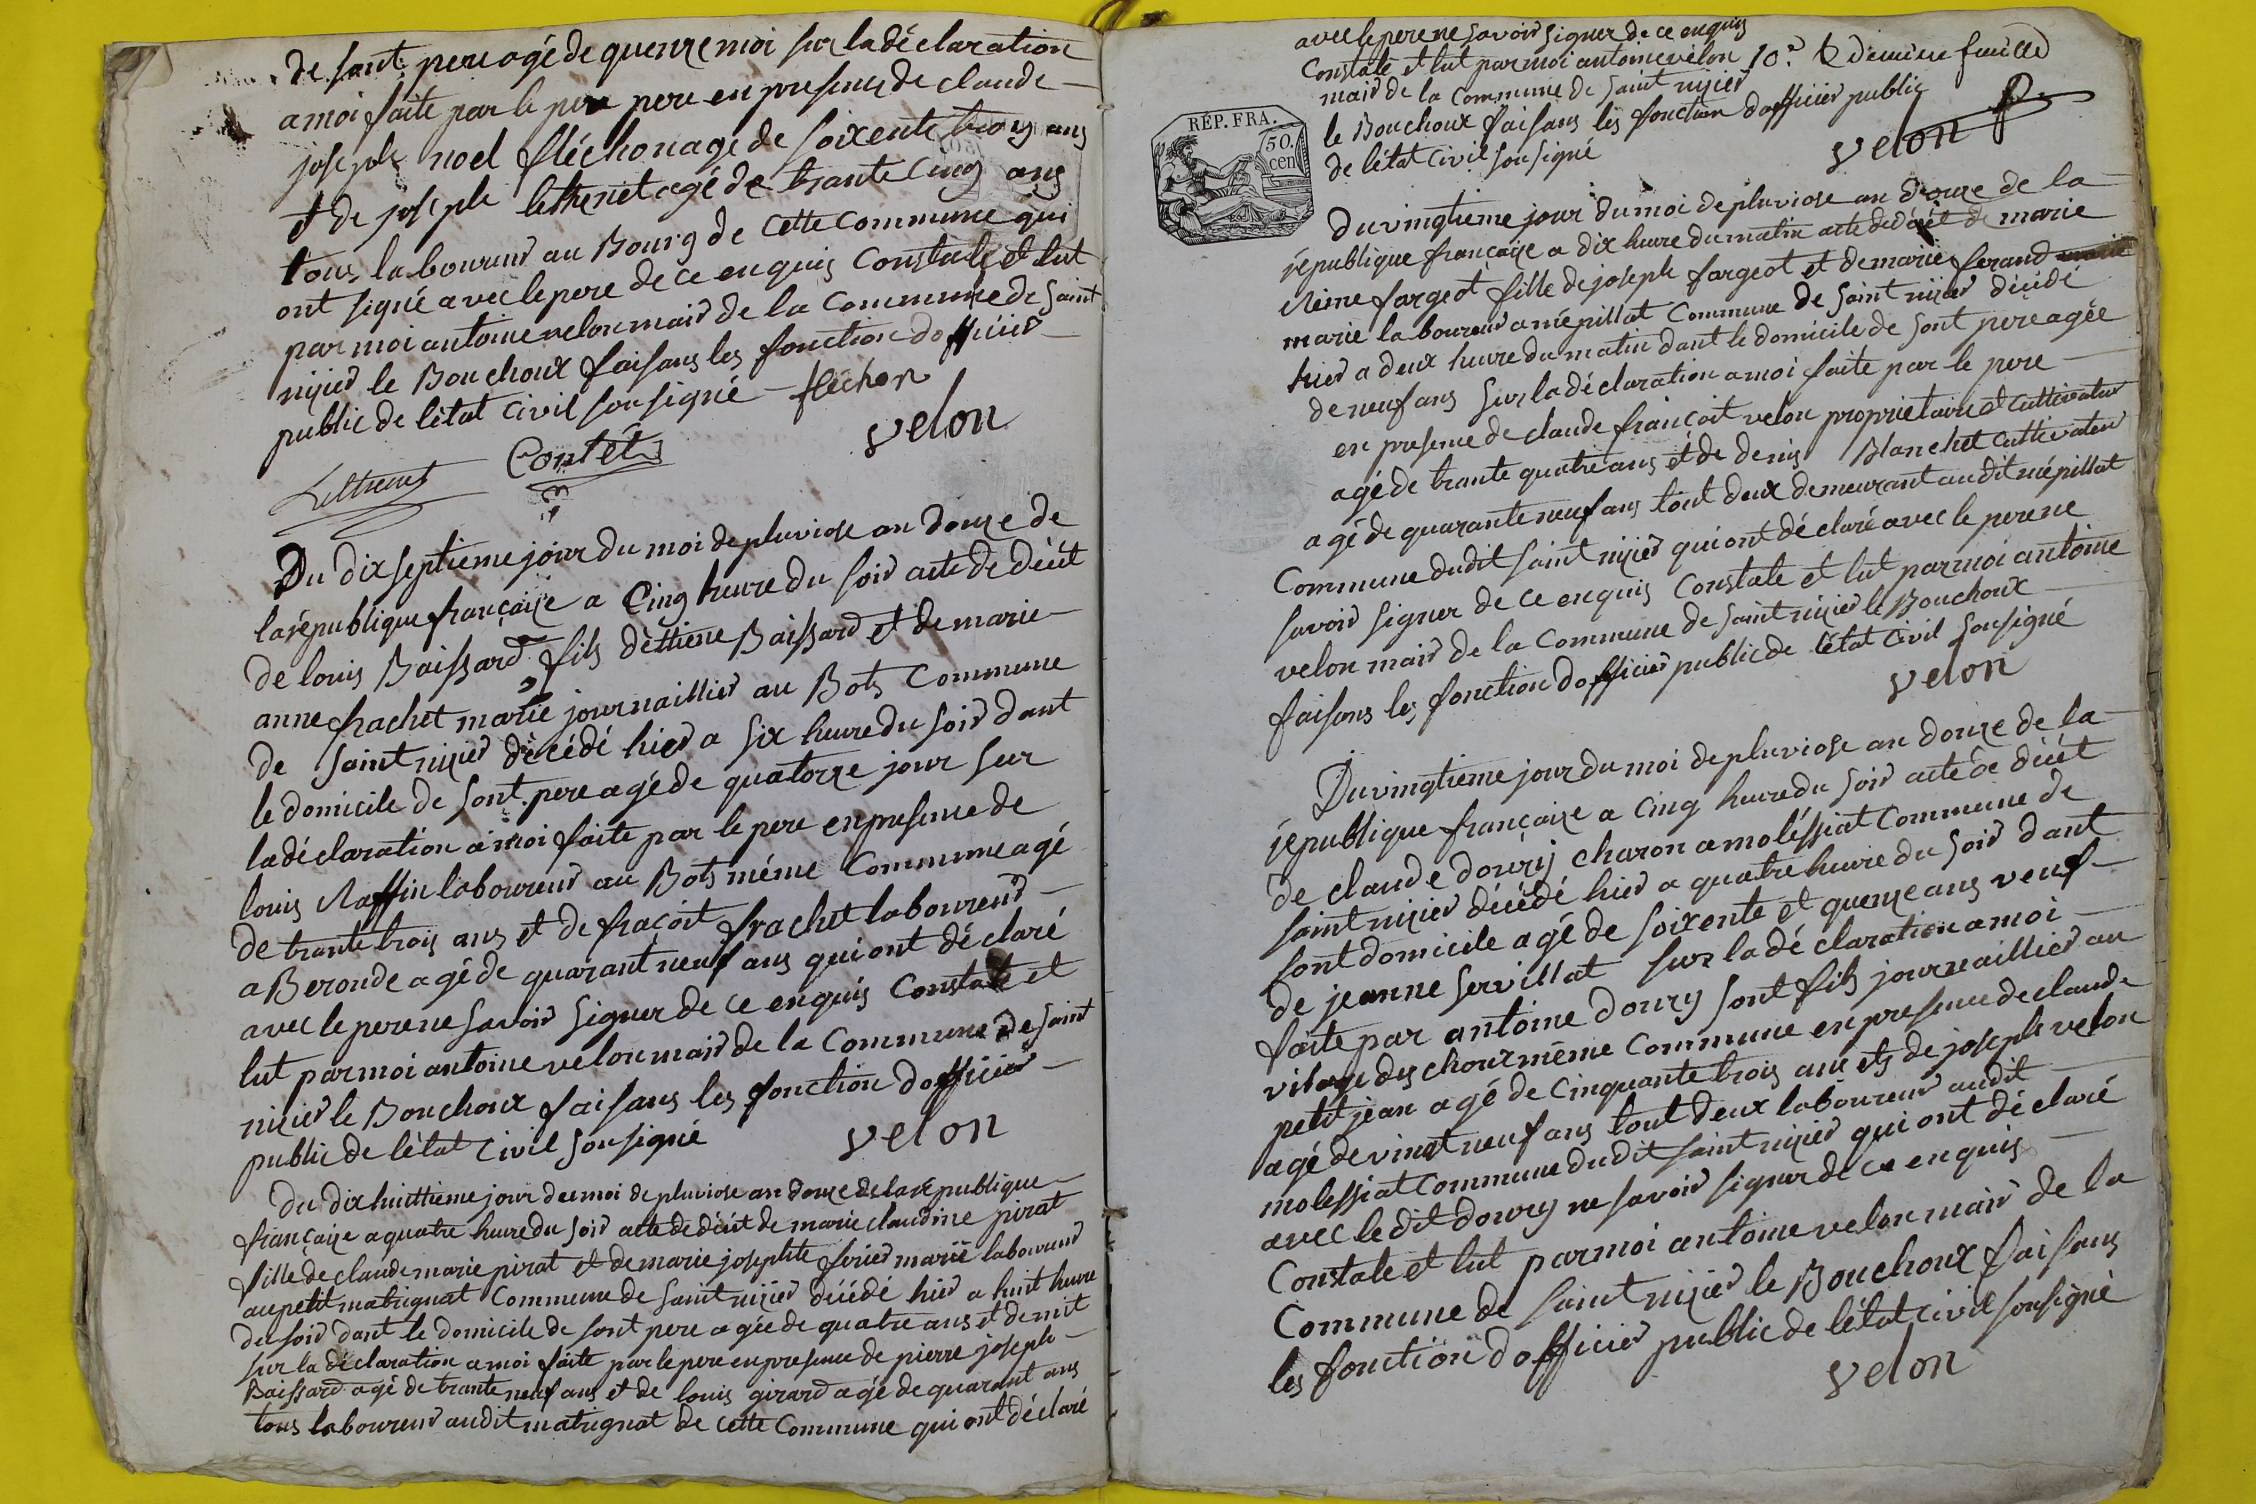 de sont pere agé de quenze moi sur la déclaration
a moi faite par le pere pere en presence de claude
joseph noel fléchon agé de soixente troy ans
et de joseph lethenet agé de trante Cinq ans
tous laboureur au Bourg de Cette Commune qui
ont signé avec le pere de ce enquis Constate et lut
par moi antoine velon mair de la Commune de saint
nizier le Bouchoux faisans les fonction dofficier
public de létat Civil sousigné fléchon
velon
Contét
Du dix septieme jour du moi de pluviose an douze de
la république française a Cinq heure du soir acte de décét
de louis Baissard fils déttiene Baissard et de marie
anne frachet marié journaillier au Bots Commune
de saint nizier décédé hier a six heure du soir dant
le domicile de sont pere agé de quatorze jour sur
la déclaration a moi faite par le pere en presence de
louis Raffin laboureur au Bots méme Commune agé
de trante trois ans et de fraçoit frachet laboureur
a Beronde agé de quarant neuf ans qui ont déclaré
avec le pere ne savoir signer de ce enquis Constate et
lut par moi antoine velon mair de la Commune de saint
nizier le Bouchoux faisans les fonction dofficier
public de létat Civil sousigné velon
Du dix huittieme jour du moi de pluviose an douze de la république
française a quatre heure du soir acte de décét de marie claudine pirat
fille de claude marie pirat et de marie josephte ferier marié laboureur
au petit matrignat Commune de saint nizier décédé hier a huit heure
du soir dant le domicile de sont pere agée de quatre ans et demit
sur la déclaration a moi faite par le pere en presence de pierre joseph
Baissard agé de trante neuf ans et de louis girard agé de quarant ans
tous laboureur audit matrignat de Cette Commune qui ont déclaré
avec le pere ne savoir signer de ce enquis
Constate et lut par moi antoine velon 10.e & derniere feuille
mair de la Commune de saint nizier
RÉP. FRA.
50.
cen
le Bouchoux faisans les fonction dofficier public
de létat Civil sousigné velon
Du vingtieme jour du moi de pluviose an douze de la
république française a dix heure du matin acte de décét de marie
Reine fargeot fille de joseph fargeot et de marie ferand
marié laboureur a mépillat Commune de saint nizier décédé
hier a deux heure du matin dant le domicile de sont pere agée
de neuf ans sur la déclaration a moi faite par le pere
en presence de claude françoit velon proprietaire et Cultivateur
agé de trante quatre ans et de denis Blanchet Cultivateur
agé de quarante neuf ans tout deux demeurant audit mépillat
Commune dudit saint nizier qui ont déclaré avec le pere ne
savoir signer de ce enquis Constate et lut par moi antoine
velon mair de la Commune de saint nizier le Bouchoux
faisans les fonction dofficier public de létat Civil sousigné
velon
Du vingtieme jour du moi de pluviose an douze de la
république française a Cinq heure du soir acte de décét
de claude doury charon a moléssiat Commune de
saint nizier décédé hier a quatre heure du soir dant
sont domicile agé de soixente et quenze ans veuf
de jeanne servillat sur la déclaration a moi
faite par antoine doury sont fils journaillier au
vilage des chour même Commune en presence de claude
petit jean agé de Cinquante trois ans et de joseph velon
agé de vingt neuf ans tout deux laboureur audit
molessiat Commune dudit saint nizier qui ont déclaré
avec le dit doury ne savoir signer de ce enquis
Constate et lut par moi antoine velon mair de la
Commune de saint nizier le Bouchoux faisans
les fonction dofficier public de létat Civil sousigné
velon